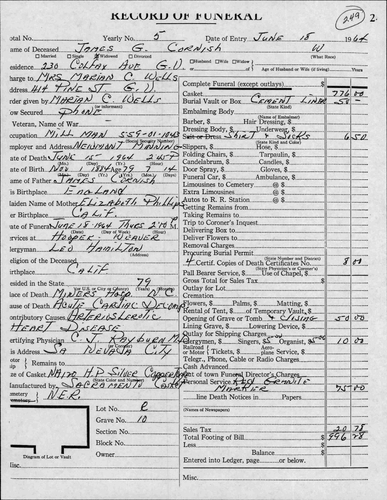 RECORD OF FUNERAL
249 2
Total No. Yearly No. 5 Date of Entry JUNE 18 1964
Name of Deceased JAMES G. CORNISH W
Married Single Widowed Divorced Husband Wife Widow (What Race)
Residence 230 COLFAX AVE G.V. Age of Husband or Wife (if living) Years
Charge to MRS MARIAN C. WELLS
Address 414 PINE ST G.V.
Order given by MARIAN C. WELLS
How Secured PHONE
Veteran, Name of War
Occupation MILL MAN 559-01-1043
(Social Security Number)
Employer and Address NEWMONT MINING
Date of Death JUNE 15 1964 2:45 P
Date of Birth NOV 1 1884 Age 79 7 14
Name of Father CORNISH
His Birthplace ENGLAND
Maiden Name of Mother ELIZABETH PHILLIPS
Her Birthplace CALIF.
Date of Funeral JUNE 18 1964 THURS 2:00 P.M.
Services at HOOPER WEAVER
Clergyman LEO HAMILTON
Religion of the Deceased
Birthplace CALIF
Resided in the State 79
Place of Death MINERS HOSP. N.C.
Cause of Death ACUTE CARDIAC
Contributory Causes ARTERIOSCLEROTIC
HEART DISEASE
Certifying Physician C. J. RAYBURN M.D.
His Address NEVADA CITY
Remains to
Size of Casket H.P. SILVER COPPER
Manufactured by SACRAMENTO CASKET
Cemetery N.E.R.
Lot No. E
Grave No. 10
Section No.
Block No.
Owner
Diagram of Lot or Vault
Complete Funeral (except outlays) $
Casket 776 00
Burial Vault or Box CEMENT LINER 58 -
(State Kind)
Embalming Body
(Name of Embalmer)
Barber, $ Hair Dressing, $
Dressing Body, $ Underwear, $
Suit or Dress SHIRT & SOCKS 6 50
(State Kind and Color)
Slippers, $ Hose, $
Folding Chairs, $ Tarpaulin, $
Candelabrum, $ Candles, $
Door Spray, $ Gloves, $
Funeral Car, $ Ambulance, $
Limousines to Cemetery @ $
Extra Limousines @ $
Autos to R. R. Station @ $
Getting Remains from
Taking Remains to
Trip to Coroner's Inquest
Delivering Box to
Deliver Flowers to
Removal Charges
Procuring Burial Permit
4 Certif. Copies of Death Certificates No. 8 00
Pall Bearer Service, $ Use of Chapel, $
Gross Total for Our Services $
Outlay for Lot
Cremation
Flowers, $ Palms, $ Matting, $
Rental of Tent, $ of Temporary Vault, $
Opening of Grave or Tomb & CLOSING 50 00
Lining Grave, $ Lowering Device, $
Outlay for Shipping Charges
Clergyman, $ Singers, $5 Organist, $5 10 00
Railroad or Motor Tickets, $ Aeroplane Service, $
Telgr., Phone, Cable or Radio Charges
Cash Advanced
Out of town Funeral Director's Charges
Personal Service RED GRANITE
MARKER 75 00
line Death Notices in Papers
(Names of Newspapers)
Sales Tax 20 78
Total Footing of Bill $ 996 78
Less $
Balance $
Entered into Ledger, page or below.
Misc.